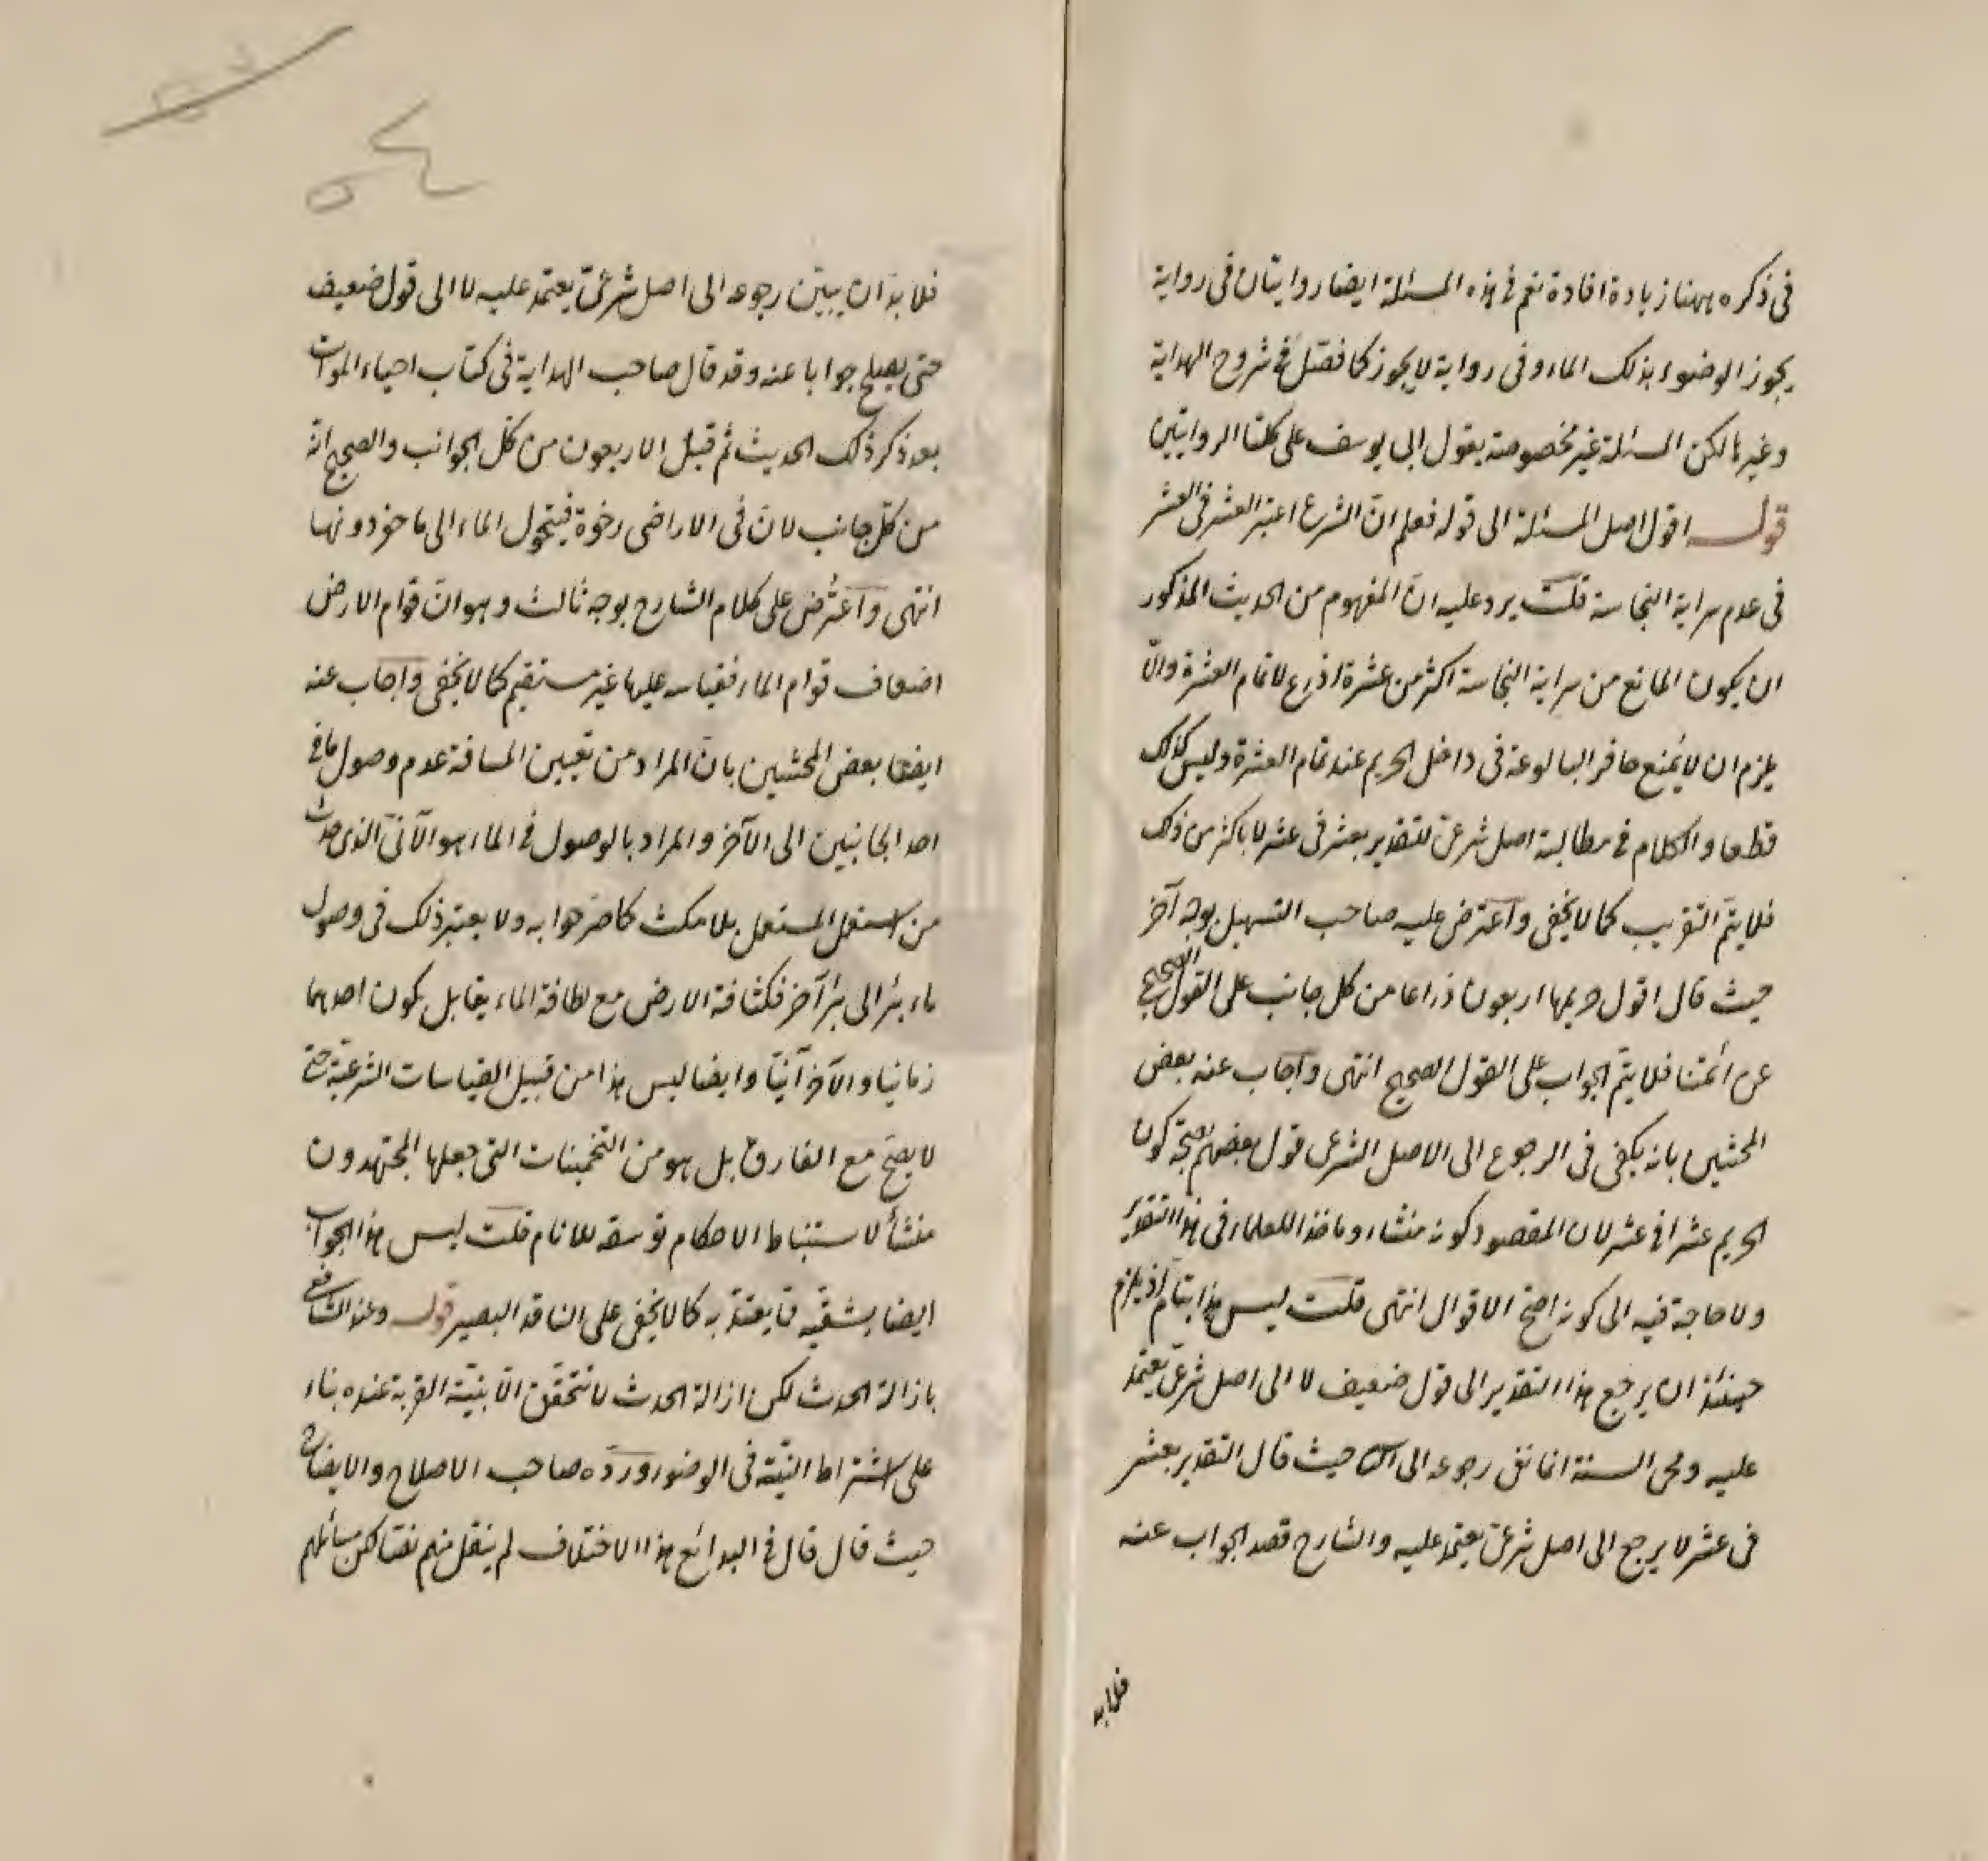 فى ذكره ههنا زيادة افادة نعم فى هذه المسئلة ايضا روايتان فى رواية
يجوز الوضوء بذلك الماء وفى رواية لا يجوز كما فصّل فى شروح الهداية
وغيرها لكن المسئلة غير مخصوصة بقول ابى يوسف على كلتا الروايتين
قوله اقول اصل المسئلة الى قوله فعلم انّ الشرع اعتبر العشر فى العشر
فى عدم سراية النجاسة قلت يرد عليه انّ المفهوم من الحديث المذكور
ان يكون المانع من سراية النجاسة اكثر من عشرة اذرع لا تمام العشرة والّا
يلزم ان لا يُمنع حافر البالوعة فى داخل الحريم عند تمام العشرة وليس كذلك
قطعا والكلام فى مطالبة اصل شرعىّ للتقدير بعشر فى عشر لا باكثر من ذلك
فلا يتمّ التقريب كما لا يخفى واعترض عليه صاحب التسهيل بوجه آخر
حيث قال اقول حريمها اربعون ذراعا من كل جانب على القول الصحيح
عن ائمّتنا فلا يتمّ الجواب على القول الصحيح انتهى واجاب عنه بعض
المحشّين بانه يكفى فى الرجوع الى الاصل الشرعى قول بعضهم بصحّة كون
الحريم عشرا فى عشر لان المقصود كونه منشاء وماخذا للعلماء فى هذا التقدير
ولا حاجة فيه الى كونه اصحّ الاقوال انتهى قلت ليس هذا بتامّ اذ يلزم
حينئذ ان يرجع هذا التقدير الى قول ضعيف لا الى اصل شرعىّ يعتمد
عليه ومحى السنة انما نفى رجوعه الى حيث قال التقدير بعشر
فى عشر لا يرجع الى اصل شرعىّ يعتمد عليه والشارح قصد الجواب عنه
فلا بد
فلا بدّ ان يبيّن رجوعه الى اصل شرعىّ يعتمد عليه لا الى قول ضعيف
حتى يصلح جوابا عنه وقد قال صاحب الهداية فى كتاب احياء الموات
بعد ذكر ذلك الحديث ثم قيل الاربعون من كلّ الجوانب والصحيح انّه
من كلّ جانب لانّ فى الاراضى رخوة فيتحول الماء الى ما حفر دونها
انتهى واعتُرض على كلام الشارح بوجه ثالث وهو انّ قوام الارض
اضعاف قوام الماء فقياسه عليها غير مستقيم كما لا يخفى واجاب عنه
ايضا بعض المحشّين بانّ المراد من تعيين المسافة عدم وصول ما فى
احد الجانبين الى الآخر والمراد بالوصول فى الماء هو الآنىّ الذى حدث
من استعمال المستعمل بلا مكث كما صرّحوا به ولا يعتبر ذلك فى وصول
ماء بئر الى بئر آخر فكثافة الارض مع لطافة الماء يقابل بكون احدهما
زمانيا والآخر آنيّا وايضا ليس هذا من قبيل القياسات الشرعيّة حتى
لا يصحّ مع الفارق بل هو من التخمينات التى جعلها المجتهدون
منشأ لاستنباط الاحكام توسعة للانام قلت ليس هذا الجواب
ايضا بشقّيه مما يعتدّ به كما لا يخفى على الناقد البصير قوله وعند الشافعى
بازالة الحدث لكن ازالة الحدث لا تتحقق الّا بنيّة القربة عنده بناء
على اشتراط النيّة فى الوضوء وردّه صاحب الاصلاح والايضاح
حيث قال قال فى البدائع هذا الاختلاف لم ينقل منهم نصّا لكن مسائلهم